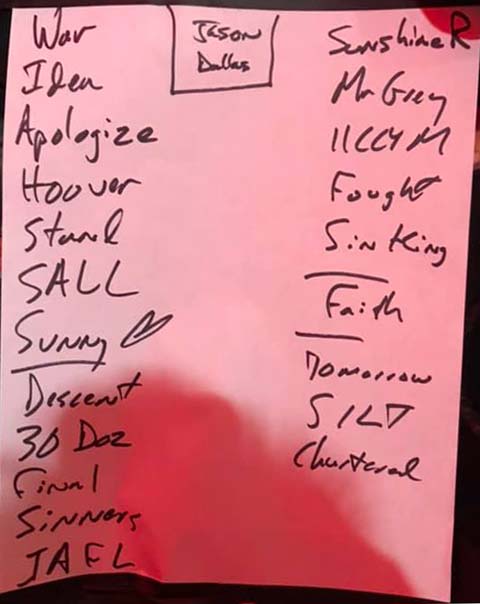 War
Idea
Apologize
Hoover
Stand
SALL
Sunny
Descent
30 Doz
Final
Sinners
JAFL
Jason
Dallas
Sunshine R
Mr Grey
IICCYM
Fought
Sin King
Faith
Tomorrow
SILT